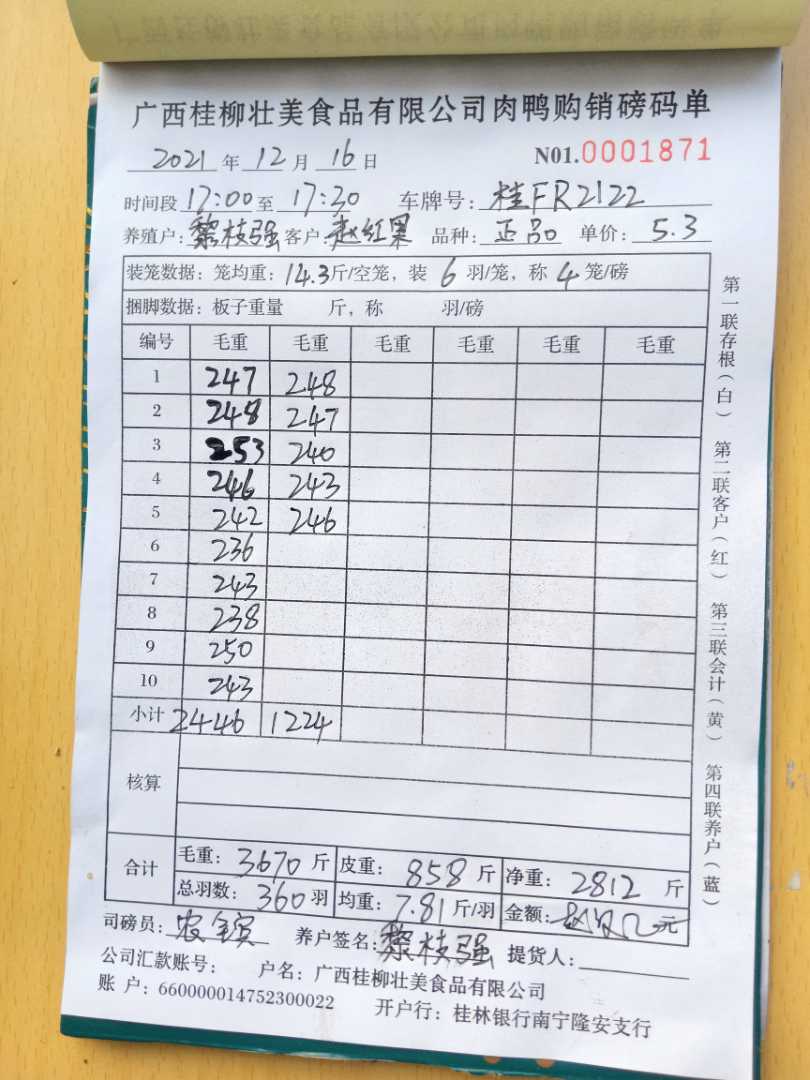 广西桂柳壮美食品有限公司肉鸭购销磅码单
2021年12月16日 N01.0001871
时间段17:00至17:30 车牌号：桂FR2122
养殖户：黎枝强 客户：赵红果 品种：正品 单价：5.3
装笼数据：笼均重：14.3斤/空笼，装6羽/笼，称4笼/磅
捆脚数据：板子重量 斤，称 羽/磅
编号 毛重 毛重 毛重 毛重 毛重 毛重
1 247 248
2 248 247
3 253 240
4 246 243
5 242 246
6 236
7 243
8 238
9 250
10 243
小计 2446 1224
核算
合计 毛重：3670斤 皮重：858斤 净重：2812斤
总羽数：360羽 均重：7.81斤/羽 金额：元
司磅员： 养户签名：黎枝强 提货人：
公司汇款账号： 户名：广西桂柳壮美食品有限公司
账户：660000014752300022 开户行：桂林银行南宁隆安支行
第一联存根（白） 第二联客户（红） 第三联会计（黄） 第四联养户（蓝）